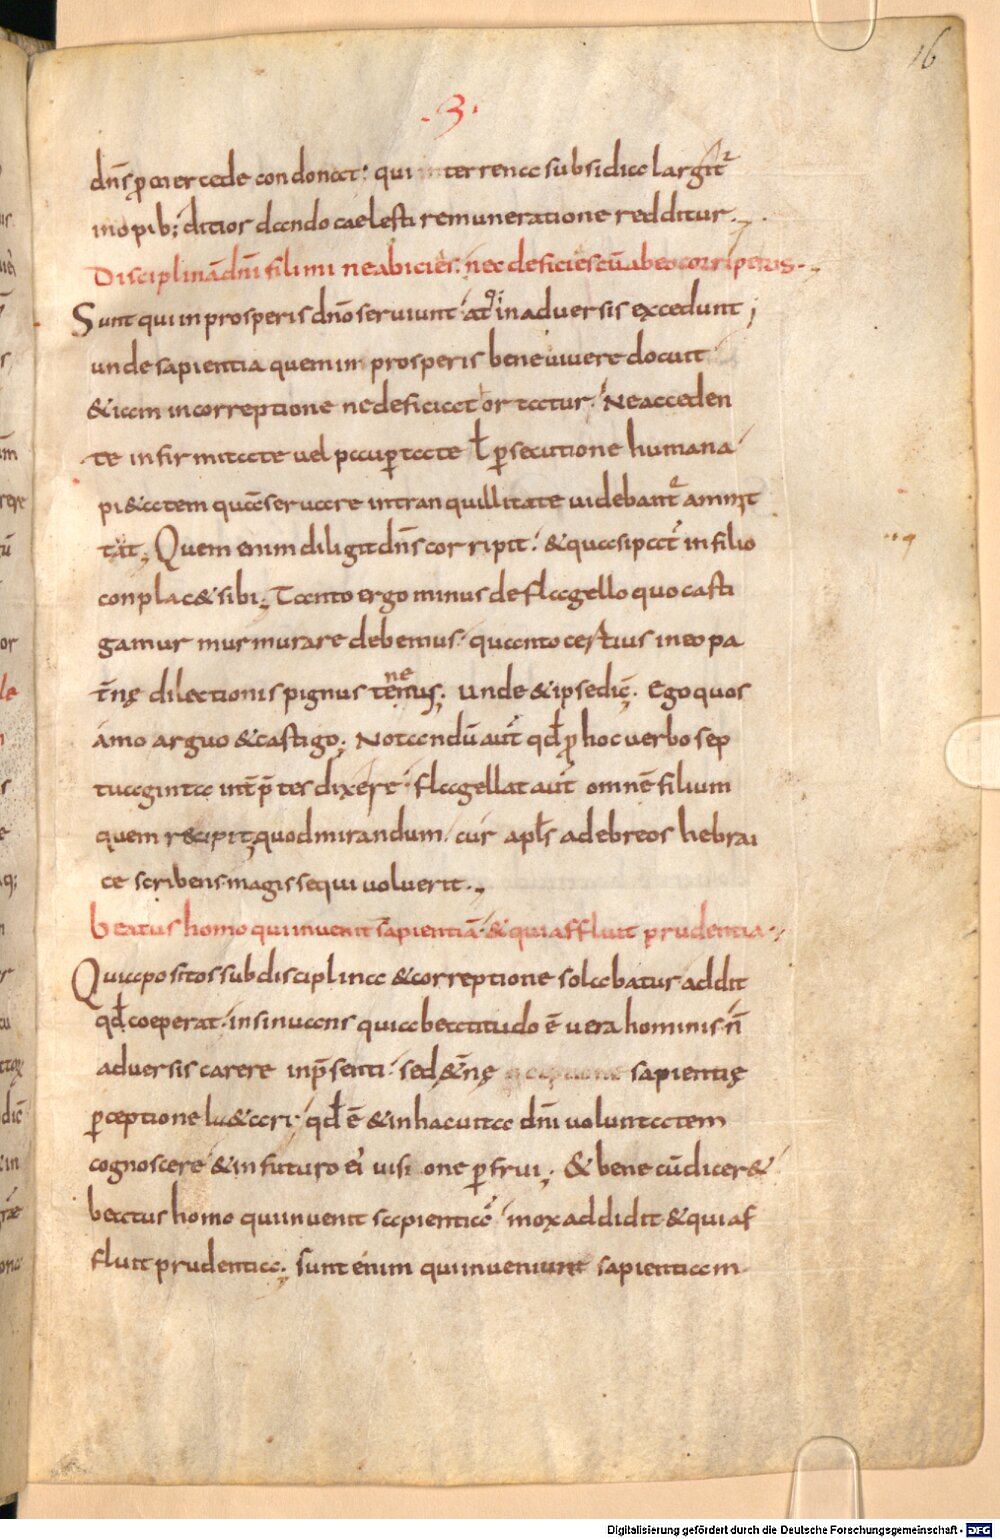 16
.3.
dn̄s ꝓ mercede condonat: qui in terrena subsidia largit᷑
inopib; ditior dando caelesti remuneratione redditur.,
Disciplinā dn̄i fili mi ne abicies. nec deficies cū ab eo corriperis.,
Sunt qui in prosperis dn̄o serviunt at qͥ in adversis excedunt;
unde sapientia quem in prosperis bene vivere docuit
&iam in correptione ne deficiat ortatur. Ne acceden
te infirmitate vel paup̲tate ł p̲secutione humana
pi&atem quā servare in tranquillitate videbant᷑ amit
tat; Quem enim diligit dn̄s corripit. & quasi pat̄ in filio
conplac& sibi; Tanto ergo minus de flagello quo casti
gamur murmurare debemus. quanto certius in eo pa
t̄nę dilectionis pignus tenemus; Unde & ipse dic̄. Ego quos
amo arguo & castigo; Notandū aut̄ qđ ꝓ hoc verbo sep
tuaginta int̄p̄tes dixere. flagellat aut̄ omnē filium
quem recipit; quod mirandum cur apłs ad ebreos hebrai
ce scribens magis sequi voluerit.,
Beatus homo qui invenit sapientiā & qui affluit prudentia.,
Quia positos sub disciplina & correptione solabatur addit
qđ coeperat. insinuans quia beatitudo ē vera hominis. n̄
adversis carere in p̄senti. sed &̄nę sapientię
p̲ceptione l&ari. qđ ē & in hac vita dn̄i voluntatem
cognoscere & in futuro ei visione p̲frui; & bene cū dicer&
beatus homo qui invenit sapientiā mox addidit & qui af
fluit prudentia; sunt enim qui inveniunt sapientiam
Digitalisierung gefördert durch die Deutsche Forschungsgemeinschaft - DFG